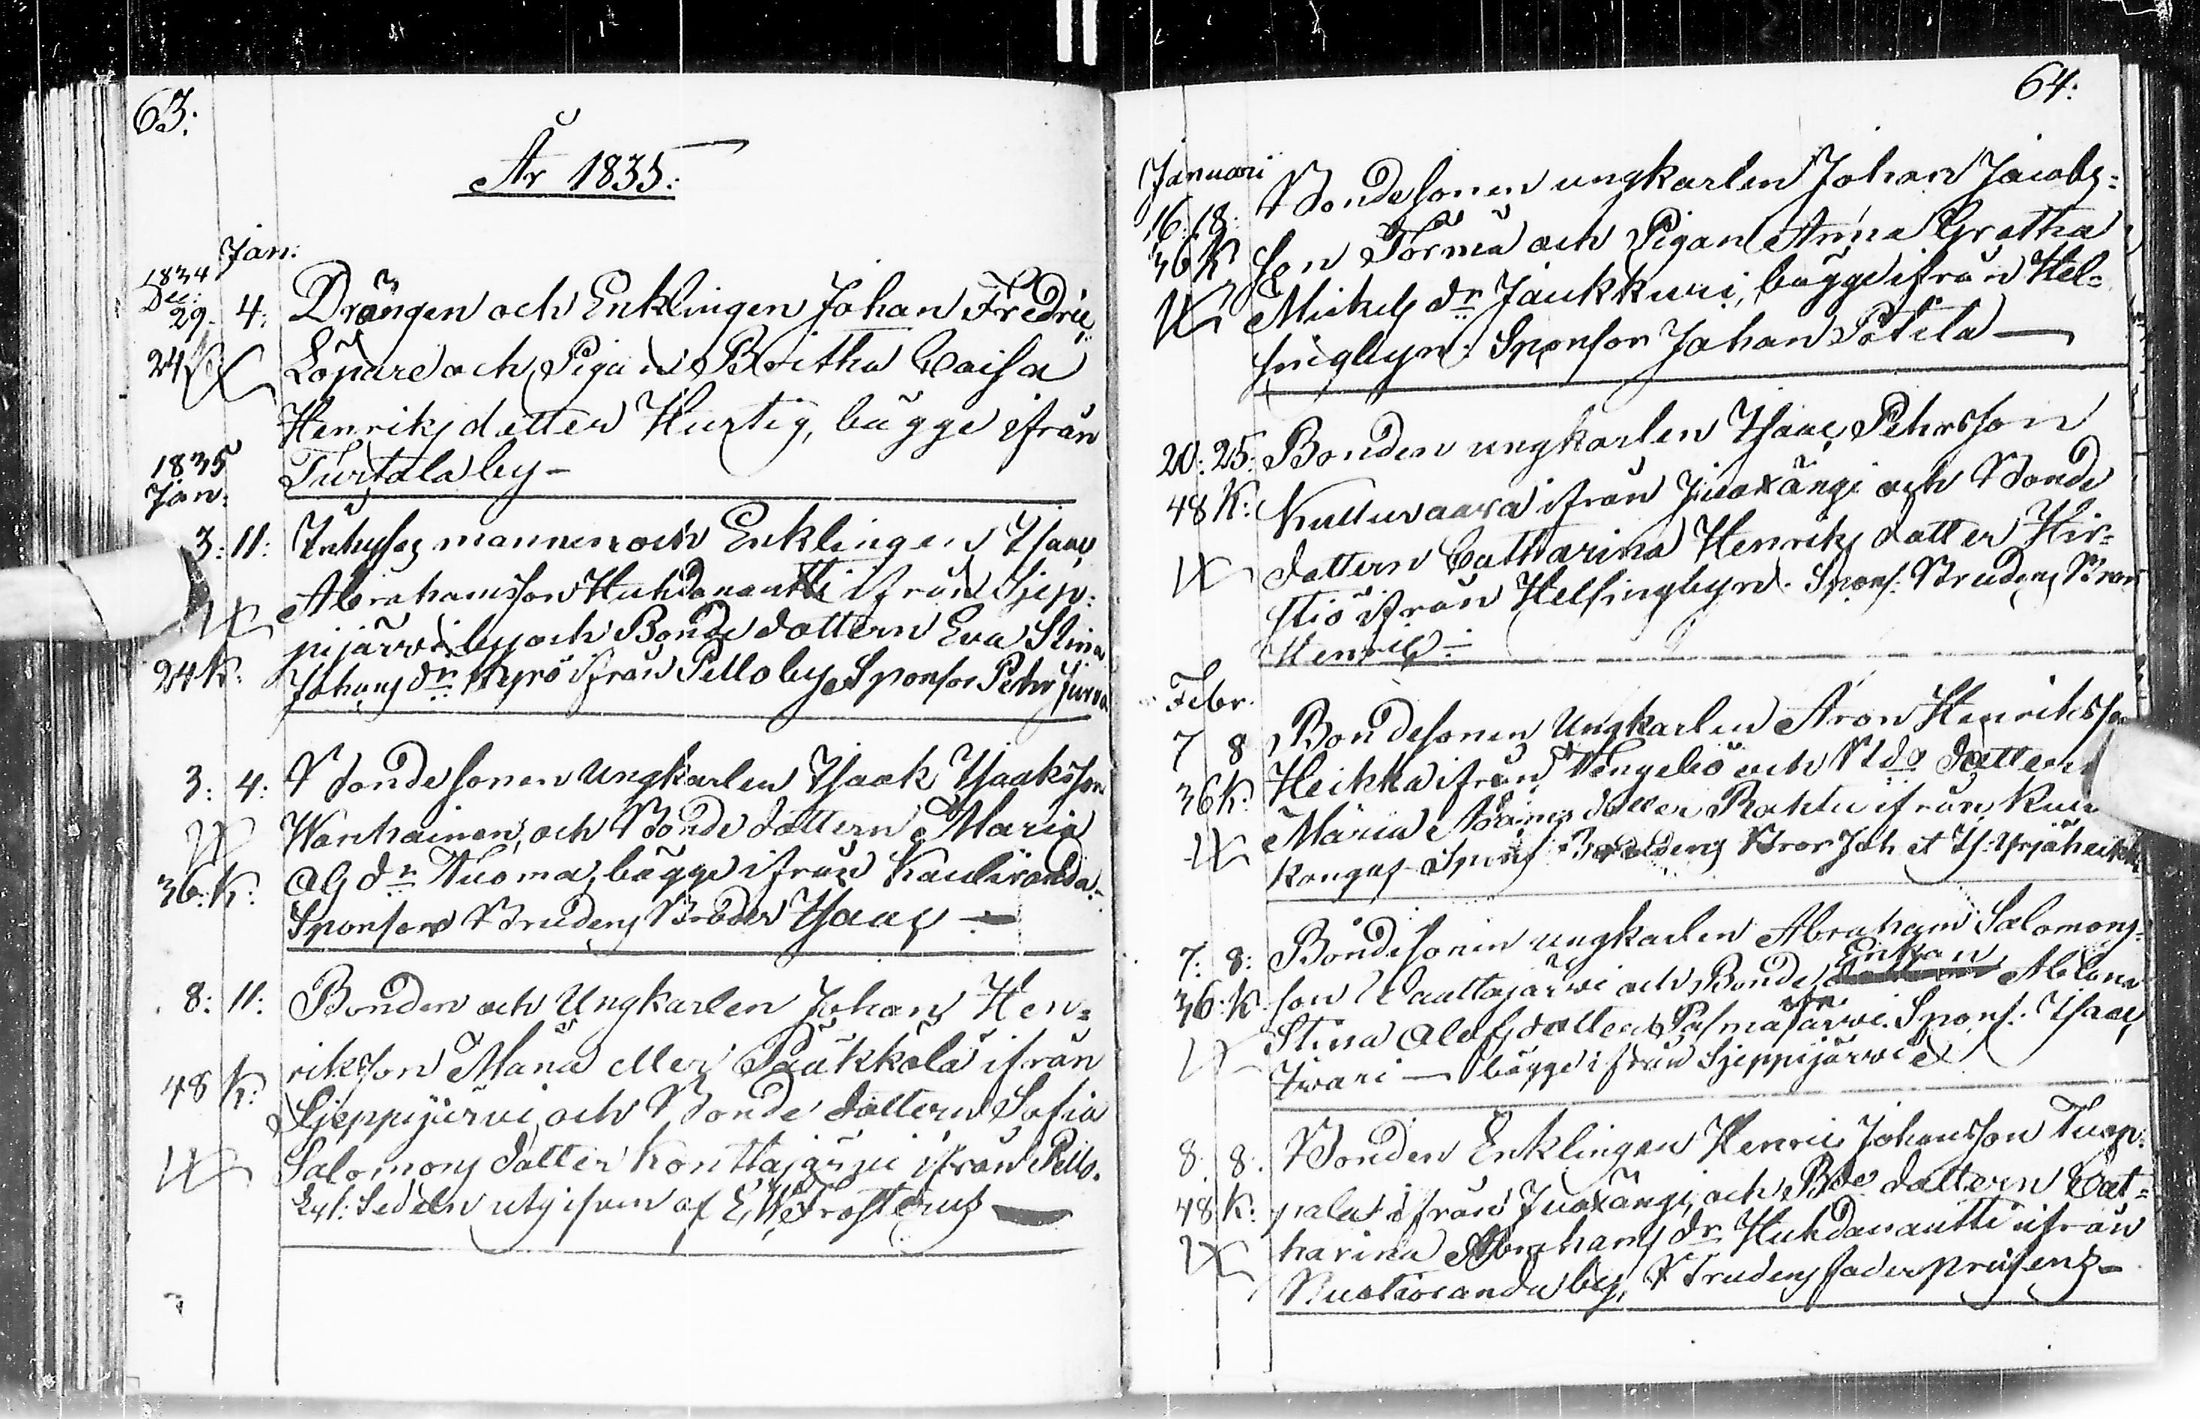 63:
År 1835:
Jan:
1834
Dec:
29. 4: Drängen och Enklingen Johan Fredric
24 Löpare och Pigan Britha Caisa
Henriks dotter Hurtig, bägge ifrån
Turtola by -
1835
Jan:
3: 11: Inhyses mannen och Enklingen Isaac
Abrahamsson Huhdanantti ifrån Sjep-
pijärvi by och Bonde dottern Eva Stina
24 K: Johans dr Myrö ifrån Pello by Sponsor Pehr Jurva
3: 4: Bondesonen Ungkarlen Isaak Isaksson
Wanhainen, och Bonde dottern Maria
36: K: Ols dr Nuoma, bägge ifrån Kauliranda.
Sponsor Brudens Broder Isaac -
8: 11: Bonden och Ungkarlen Johan Hen=
riksson Mana eller Paakkola ifrån
48 K: Sjeppijärvi och Bonde dottern Sofia
Salomons dotter Konttajärvi ifrån Pello.
Lyt: Sedeln utgifven af E. W. Frosterus
64:
Januari
16. 18: Bondesonen ungkarlen Johan Jacobs=
36 K son Törmä och Pigan Anna Gretha
Mickels dr Jaukkuri, bägge ifrån Hel=
singbyn. Sponsor Johan Pötilä -
20: 25: Bonden ungkarlen Isaac Pehrsson
48 K: Kulluvaara ifrån Juoxängi och Bonde
dottern Catharina Henriks dotter Hir=
stiö ifrån Helsingbyn. Spons: Brudens Bror
Henric -
Febr.
7 8 Bondesonen Ungkarlen Aron Henriksson
36 K: Heikka ifrån Tengeliö och Bde dottern
Maria dotter Rahtu ifrån
Kangas Spons Brudens Bror Joh et Is: Yrjäheikki
7: 8: Bondesonen ungkarlen Abraham Salomons=
Enkan
36: K son Vaattojärvi och Bonde
Stina Olofs dotter Pasmajärvi. Spons: Isaac
Iwari - bägge ifrån Sjeppijärvi
8 8: Bonden Enklingen Henric Johansson Tuop:
48 K: pala ifrån Juoxängi, och Bde dottern Cat=
harina Abrahams dr Huhdanantti ifrån
Ruotioranda by, Brudens fader præsens -